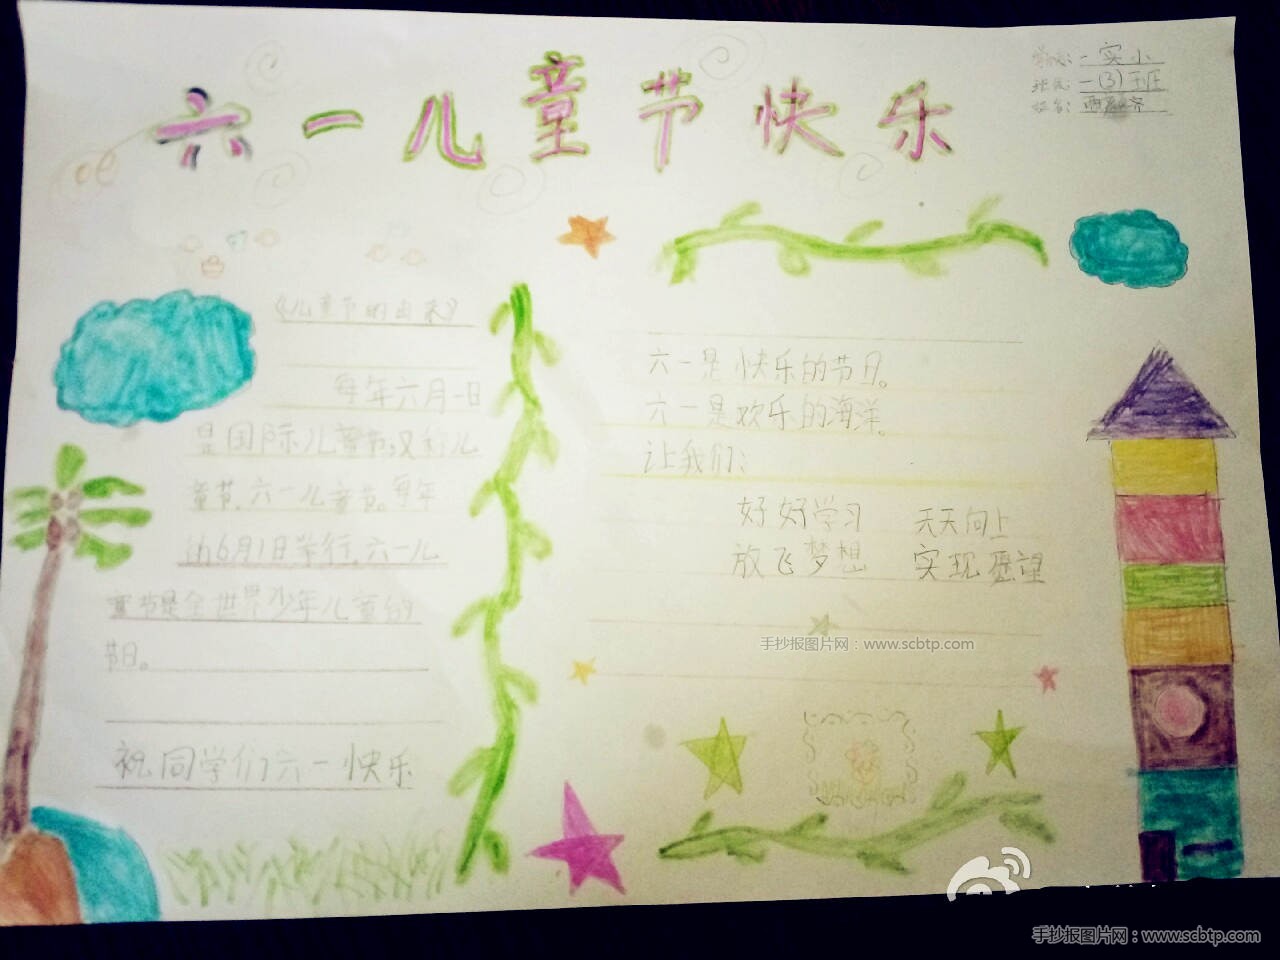 六一儿童节快乐
学校：一实小
班级：一(3)班
姓名：
《儿童节的由来》
每年六月一日
是国际儿童节,又称儿
童节,六一儿童节。每年
的6月1日举行,六一儿
童节是全世界少年儿童的
节日。
祝同学们六一快乐
六一是快乐的节日。
六一是欢乐的海洋。
让我们：
好好学习 天天向上
放飞梦想 实现愿望
手抄报图片网：www.scbtp.com
手抄报图片网：www.scbtp.com